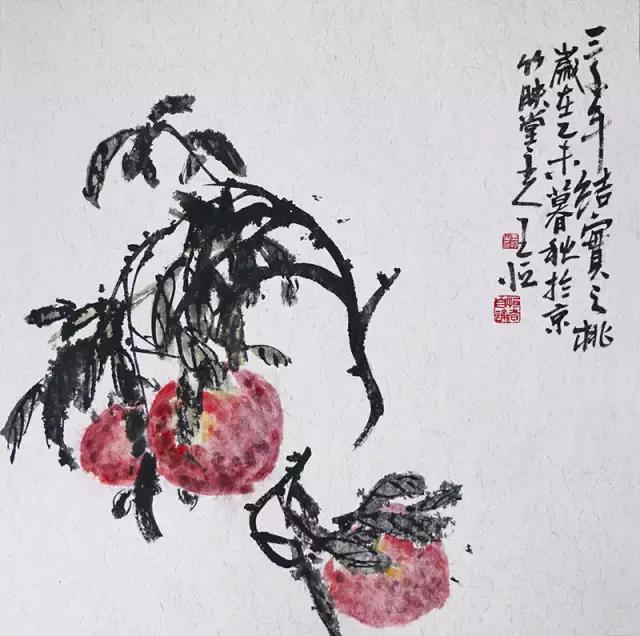 三千年結實之桃
歲在乙未暮秋於京
竹映堂主人
王恒